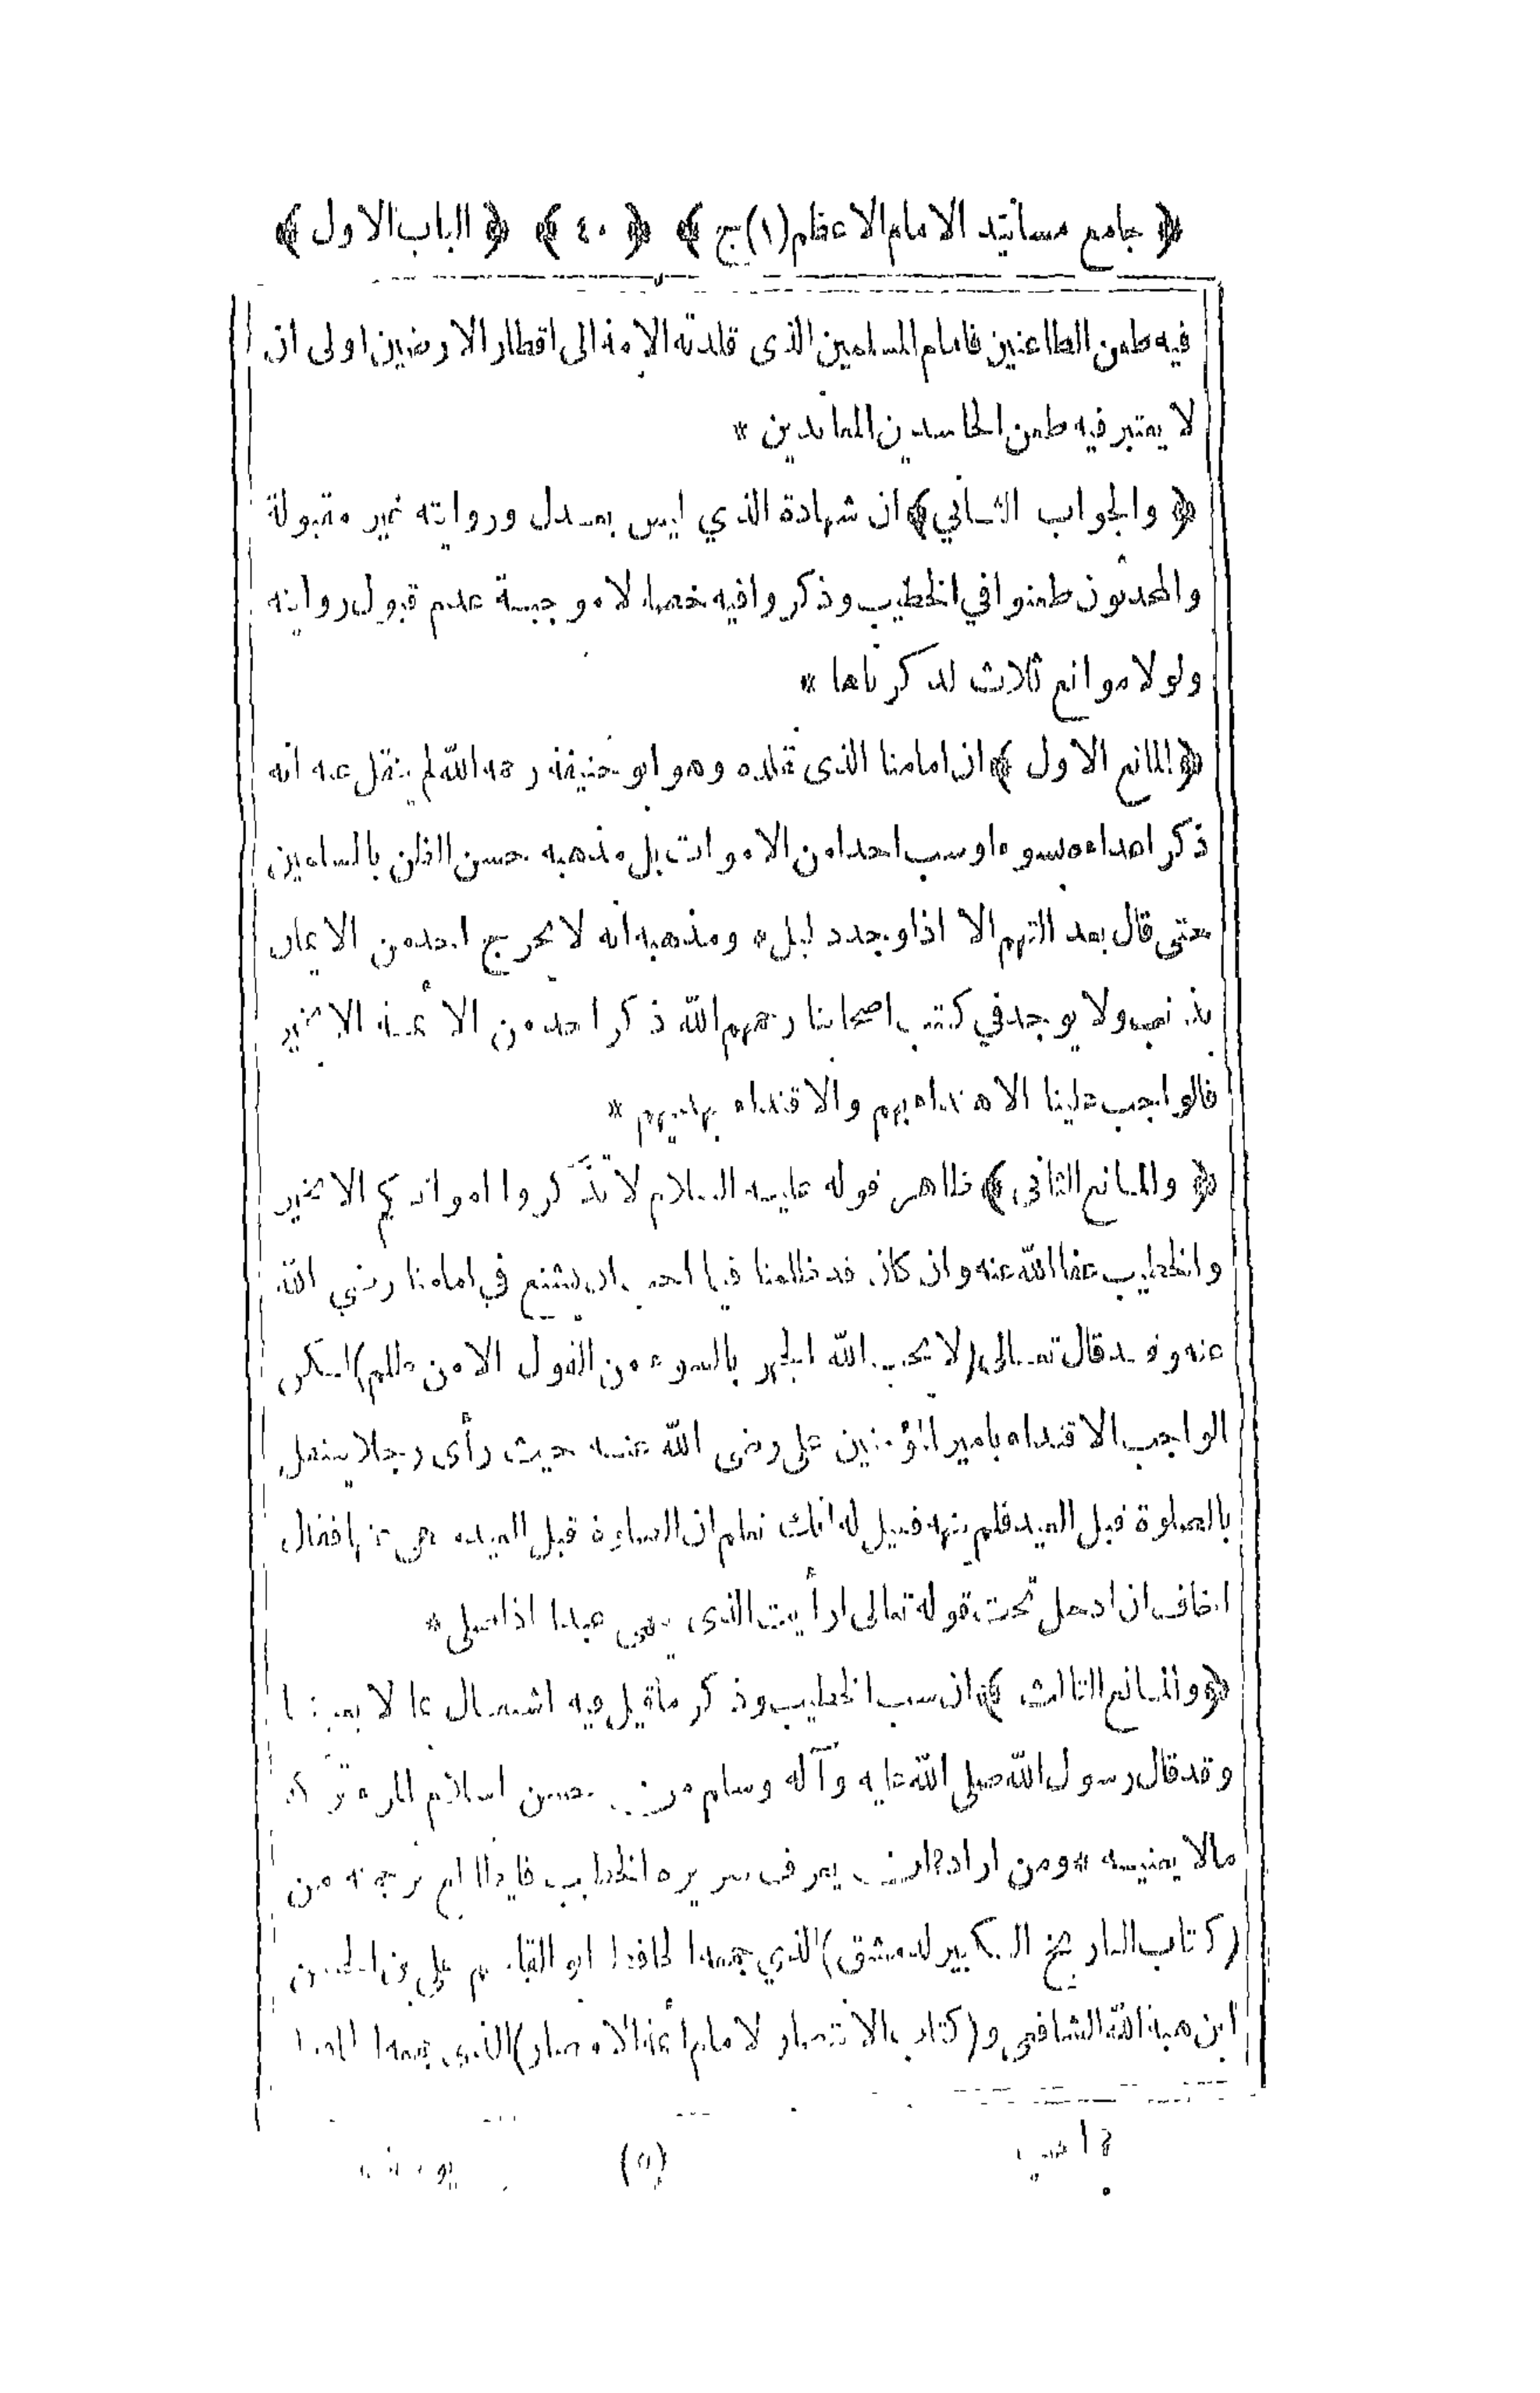 ﴿ جامع مسانيد الامام الاعظم (١) ج ﴾ ﴿ ٤٠ ﴾ ﴿ الباب الاول ﴾
فيه طعن الطاعنين فامام المسلمين الذى قلدته الامة الى اقطار الارضين اولى ان
لا يعتبر فيه طعن الحاسدين المعاندين *
﴿ والجواب الثـانى ﴾ ان شهادة الذي ليس بعـدل وروايته غير مقبولة
والمحدثون طعنوا في الخطيب وذكروا فيه خصالا موجبـة عدم قبول روايته
ولولا موانع ثلاث لذكرناها *
﴿ المانع الاول ﴾ ان امامنا الذى نقلده وهو ابو حنيفة رحمه الله لم ينقل عنه انه
ذكر احدا بسوء او سب احدا من الاموات بل مذهبه حسن الظن بالمسلمين
حتى قال بعد التهم الا اذا وجد دليل * ومذهبه انه لا يخرج احد من الايمان
بذنب ولا يوجد في كتب اصحابنا رحمهم الله ذكر احد من الأئمـة الا بخير
فالواجب علينا الاهتداء بهم والاقتداء بهديهم *
﴿ والمـانع الثانى ﴾ ظاهر قوله عليـه السلام لا تذكروا امواتكم الا بخير
والخطيب عفا الله عنه وان كان قد ظلمنا فيا يشنع في امامنا رضي الله
عنه وقـد قال تعـالى (لا يحب الله الجهر بالسوء من القول الا من ظلم) لـكن
الواجب الاقتداء بامير المؤمنين على رضى الله عنـه حيث رأى رجلا يتنفل
بالصلوة قبل العيد فلم ينهه فقيل له انك تعلم ان الصلوة قبل العيد فقال
اخاف ان ادخل تحت قوله تعالى ارأيت الذى ينهى عبدا اذا صلى *
﴿ والمـانع الثالث ﴾ ان سب الخطيب وذكر ماقيل فيه اشتغـال بما لا يعنينا
وقد قال رسول الله صلى الله عليه وآله وسلم من حسن اسلام المرء تركه
مالا يعنيـه * ومن اراد ان يعرف سريرة الخطيب فليطالع ترجمته من
(كتاب التاريخ الـكبير لدمشق) الذي جمعه الحافظ ابو القاسم على بن الحسن
ابن هبة الله الشافعى و (كتاب الانتصار لامام أئمة الامصار) الذى جمعه
(٥) يوسف